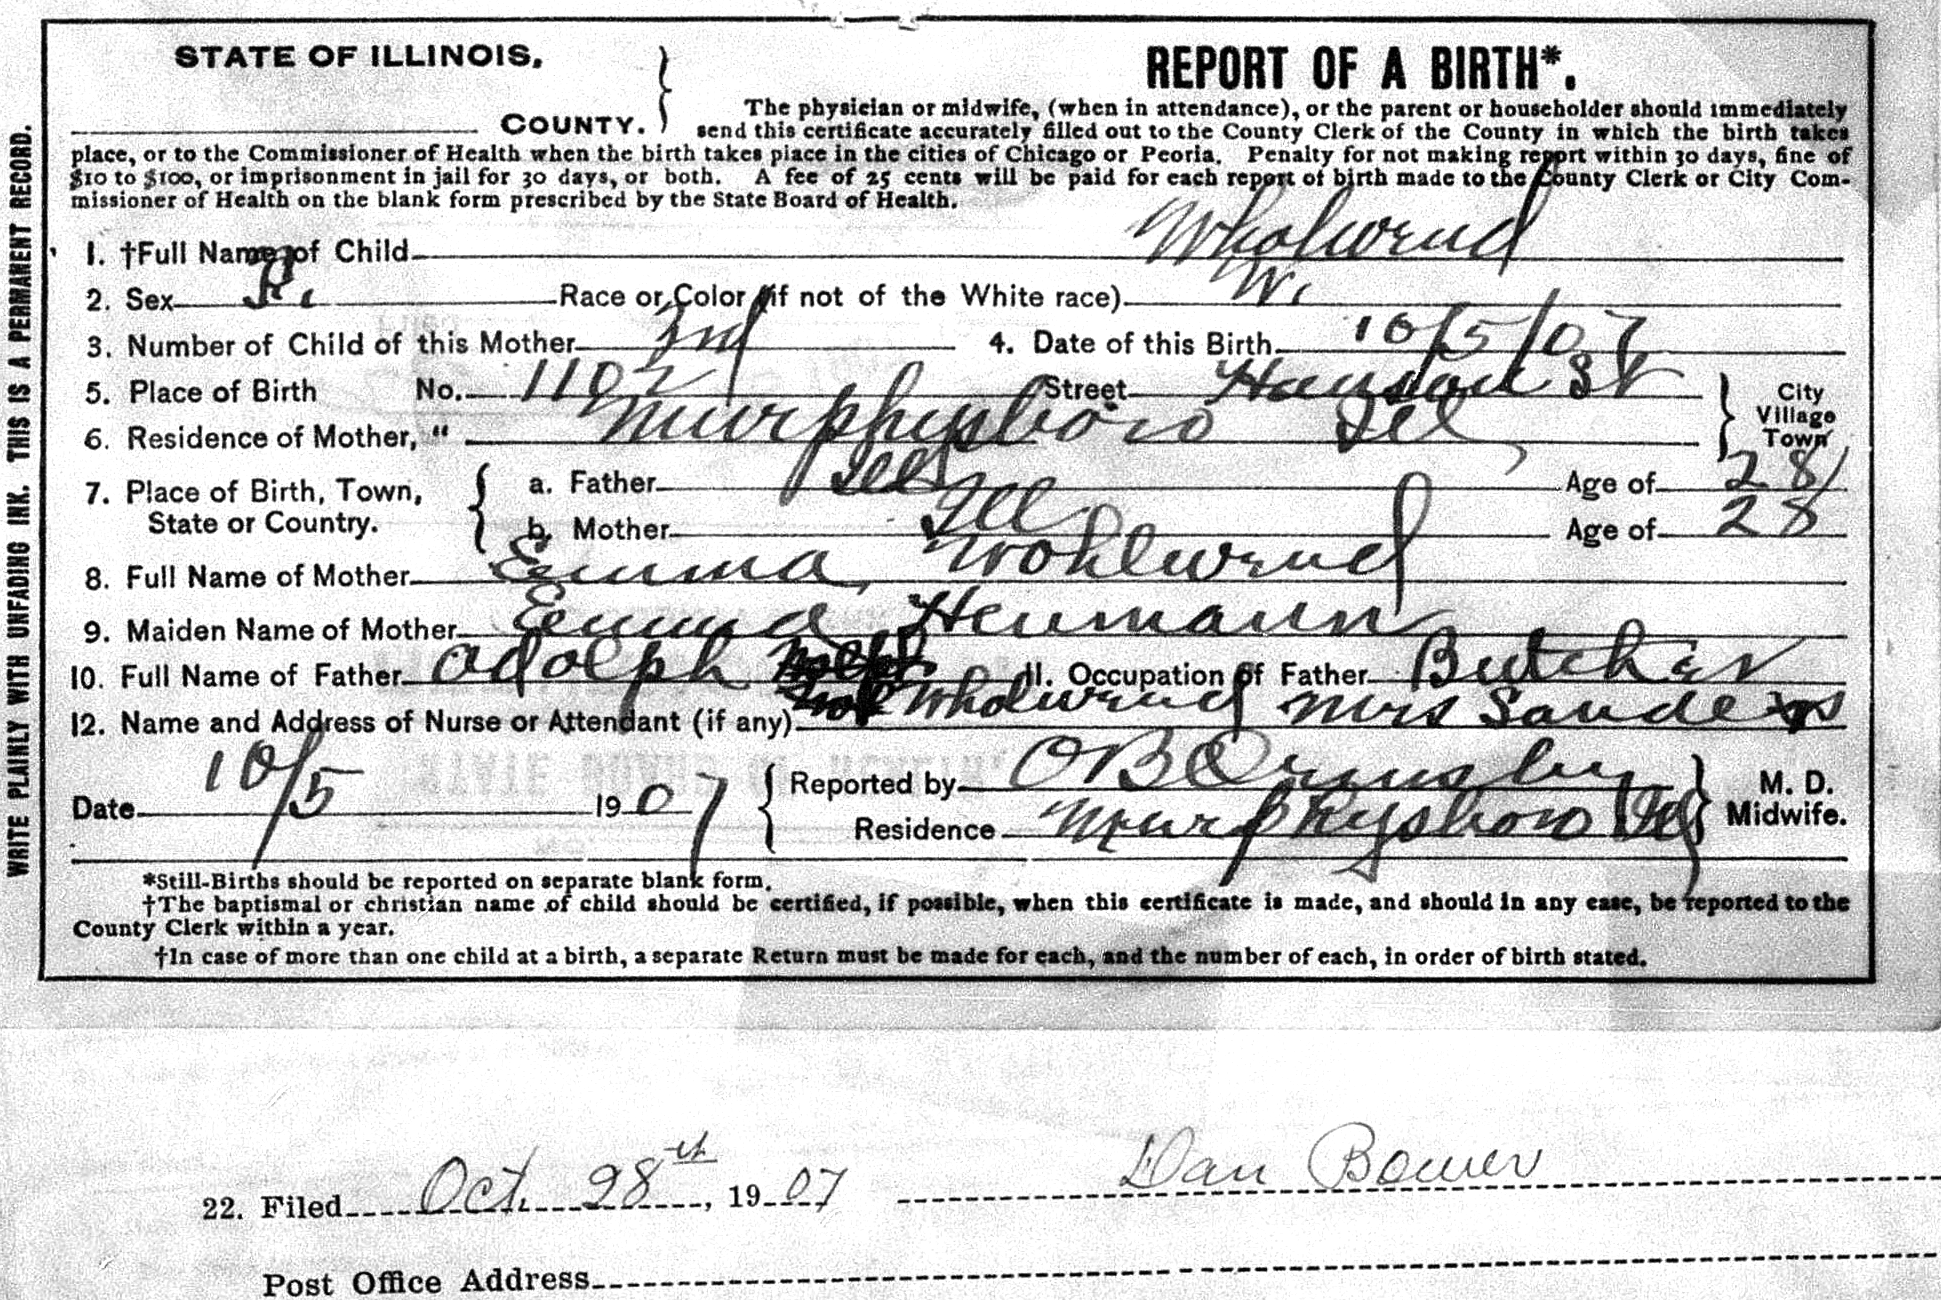 STATE OF ILLINOIS,
COUNTY.
REPORT OF A BIRTH*.
The physician or midwife, (when in attendance), or the parent or householder should immediately
send this certificate accurately filled out to the County Clerk of the County in which the birth takes
place, or to the Commissioner of Health when the birth takes place in the cities of Chicago or Peoria. Penalty for not making report within 30 days, fine of
$10 to $100, or imprisonment in jail for 30 days, or both. A fee of 25 cents will be paid for each report of birth made to the County Clerk or City Com-
missioner of Health on the blank form prescribed by the State Board of Health.
1. †Full Name of Child Wholwend
2. Sex Race or Color (if not of the White race) W.
3. Number of Child of this Mother 3rd 4. Date of this Birth 10/5/07
5. Place of Birth No. 1102 Street St
City
Village
Town
6. Residence of Mother, " Murphysboro Ill
7. Place of Birth, Town, State or Country. a. Father Ill Age of 28
b. Mother Ill Age of 28
8. Full Name of Mother Emma Wohlwend
9. Maiden Name of Mother Emma Heumann
10. Full Name of Father Adolph Wholwend 11. Occupation of Father Butcher
12. Name and Address of Nurse or Attendant (if any) Mrs Sanders
Date 10/5 1907 Reported by OB Ormsby M. D.
Residence Murphysboro Ill Midwife.
*Still-Births should be reported on separate blank form.
†The baptismal or christian name of child should be certified, if possible, when this certificate is made, and should in any case, be reported to the
County Clerk within a year.
†In case of more than one child at a birth, a separate Return must be made for each, and the number of each, in order of birth stated.
WRITE PLAINLY WITH UNFADING INK. THIS IS A PERMANENT RECORD.
22. Filed Oct. 28th, 1907 Dan Bower
Post Office Address